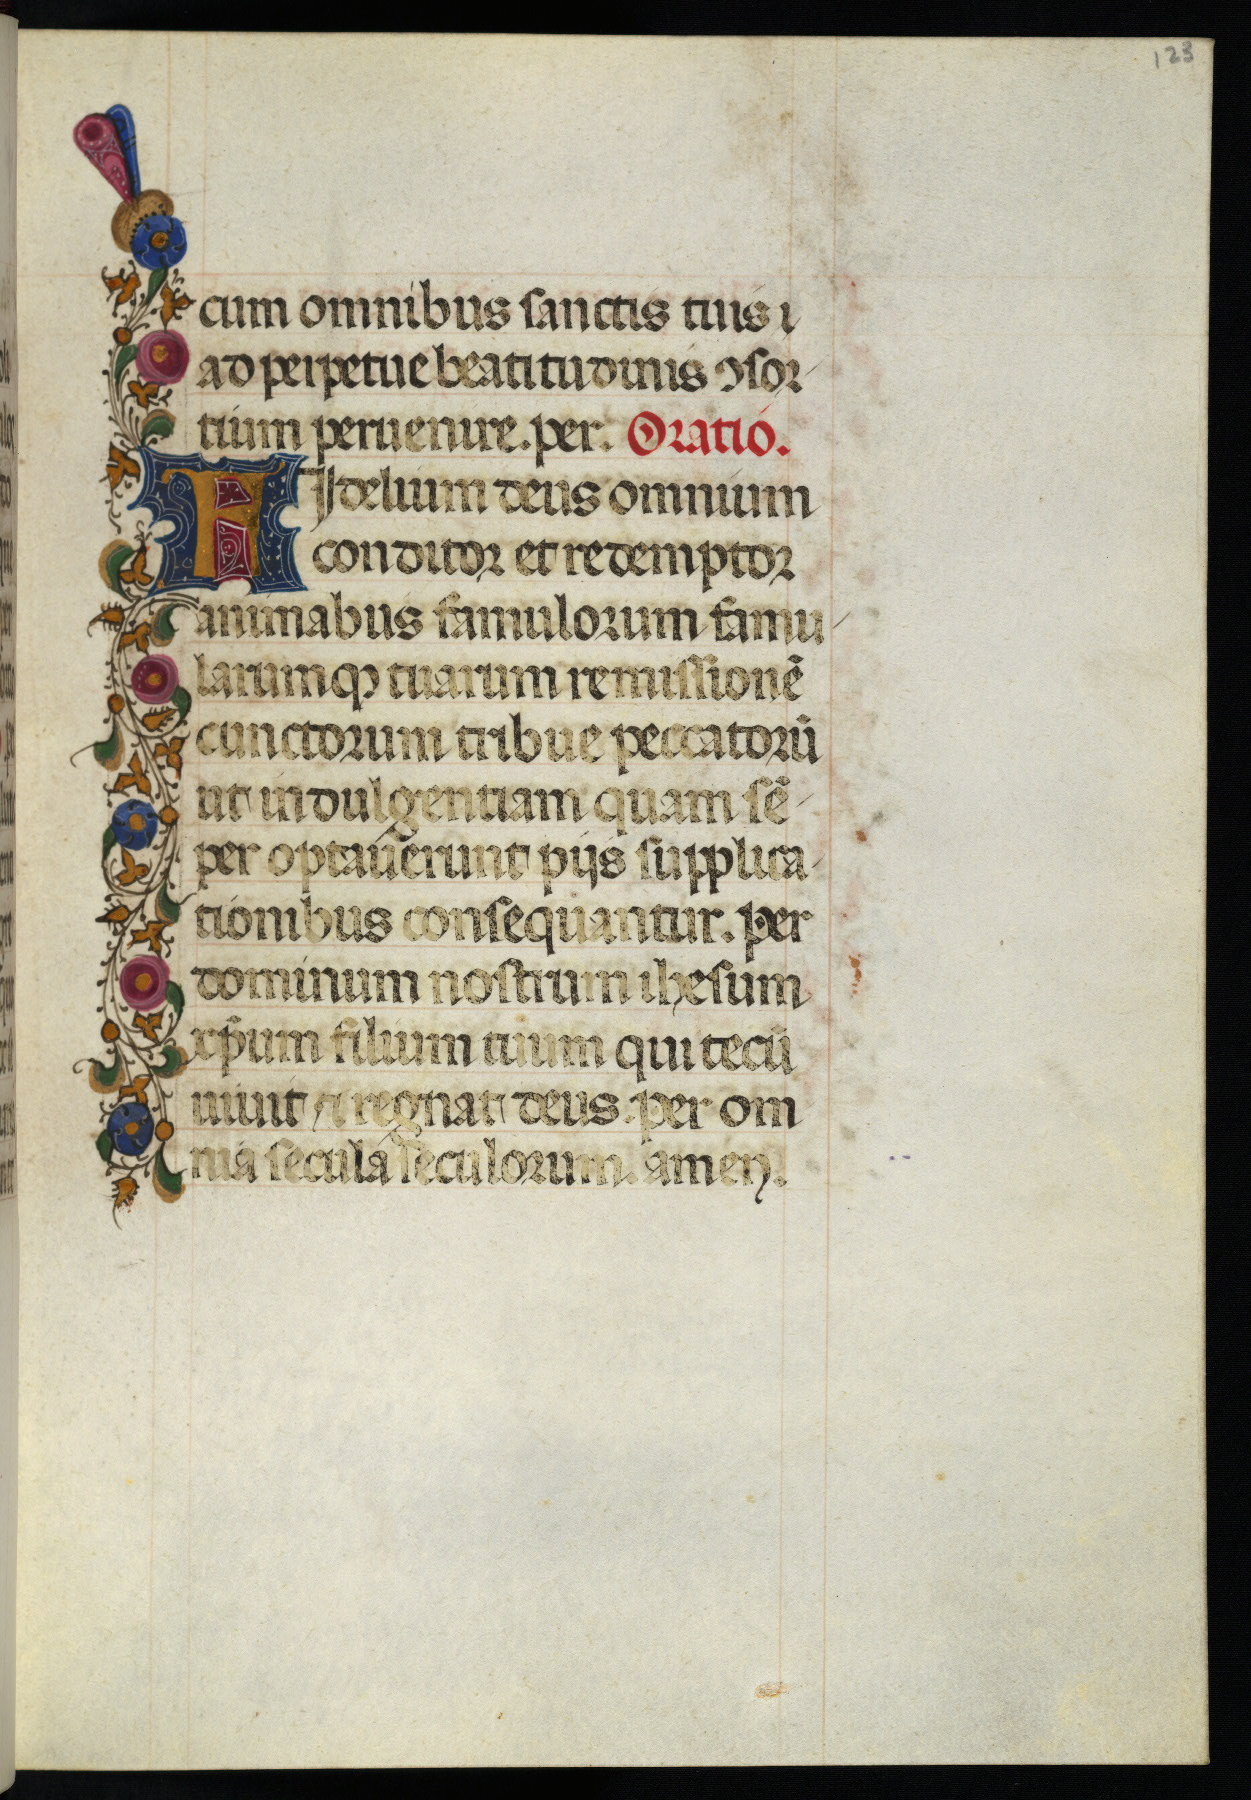 123
cum omnibus sanctis tuis i
ad perpetue beatitudinis ꝯsor-
tium peruenire. per. Oratio.
Fidelium deus omnium
conditor et redemptor
animabus famulorum famu-
larumqꝫ tuarum remissionē
cunctorum tribue peccatorū
ut indulgentiam quam sē-
per optauerunt pijs supplica-
tionibus consequantur. per
dominum nostrum ihesum
xp̄um filium tuum qui tecū
uiuit et regnat deus. per om
nia secula seculorum. amen.